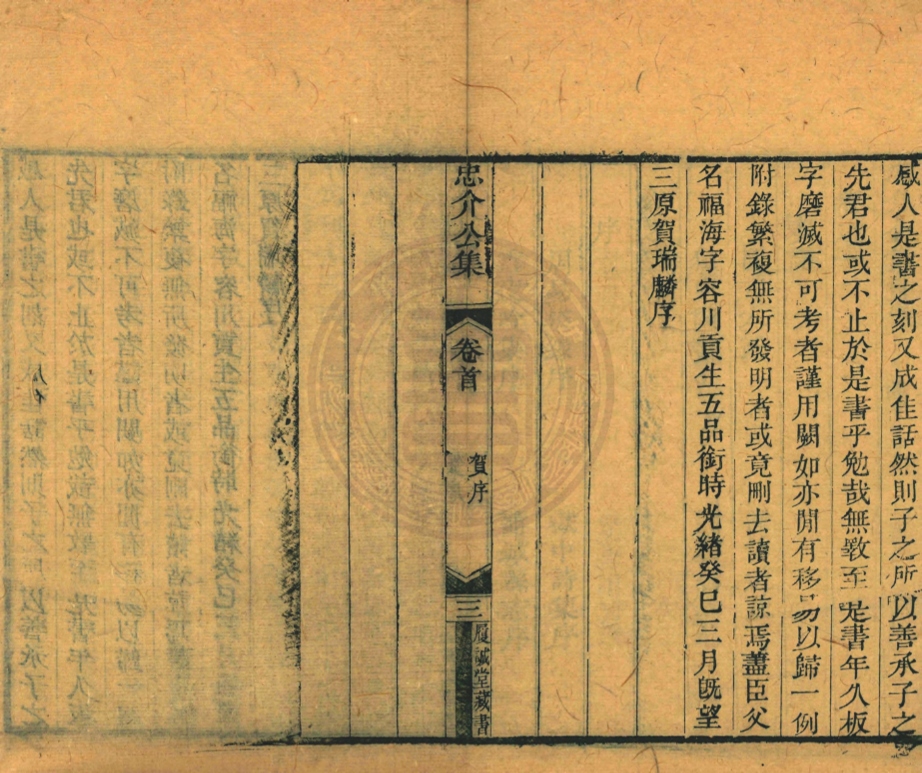 感人是書之刻又成佳話然則子之所以善承子之
先君也或不止於是書乎勉哉無斁至是書年久板
字磨滅不可考者謹用闕如亦間有移易以歸一例
附錄繁複無所發明者或竟刪去讀者諒焉藎臣父
名福海字容川貢生五品銜時光緒癸巳三月旣望
三原賀瑞麟序
忠介公集
卷首
賀序
三
履誠堂藏書